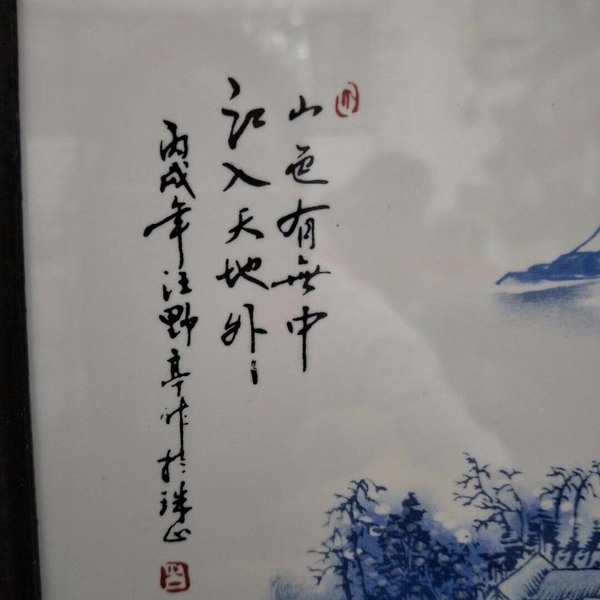 山色有無中
江入天地外
丙戌年汪野亭作於珠山